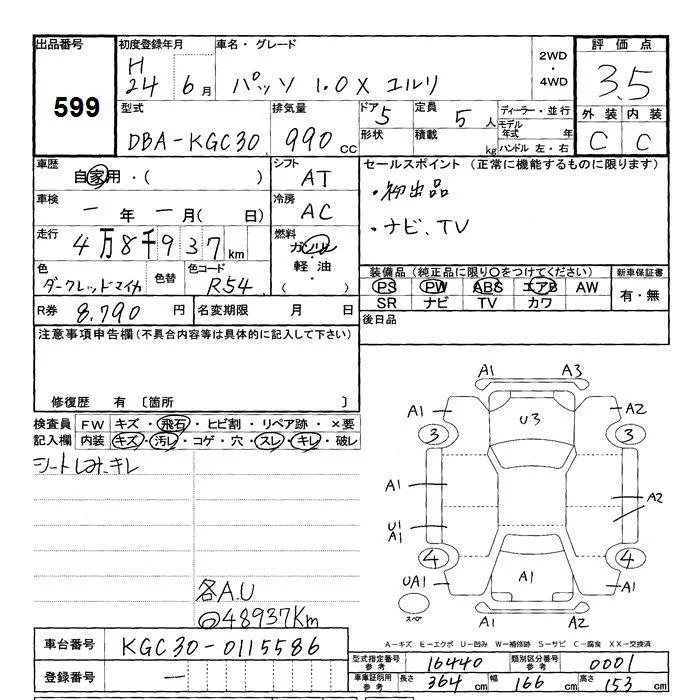 出品番号 初度登録年月 車名・グレード 2WD・4WD 評価点
599 H24 6月 パッソ 1.0X ユルリ 3.5
型式 排気量 ドア 5 定員 5人 ディーラー・並行 外装 内装
DBA-KGC30 990cc 形状 積載 kg モデル年式 年 C C
ハンドル 左・右
車歴 自家用・( ) シフト AT セールスポイント (正常に機能するものに限ります)
車検 一年一月( 日) 冷房 AC ・初出品
走行 4万8千937km 燃料 ガソリン・軽油・ ・ナビ、TV
色 ダークレッドマイカ 色替 色コード R54 装備品 (純正品に限り○をつけてください) 新車保証書
PS PW ABS エアB AW 有・無
SR ナビ TV カワ
R券 8,790円 名変期限 月 日 後日品
注意事項申告欄 (不具合内容等は具体的に記入して下さい)
修復歴 有 〔箇所 〕
検査員 FW キズ・飛石・ヒビ割・リペア跡・×要
記入欄 内装 キズ・汚レ・コゲ・穴・スレ・キレ・破レ
シートしみ、キレ
A1 A3
A1 U3 A2
3 3
A1 A2
U1
A1
4 4
UA1 A1 A1
スペア
A1 A2
各A.U
48937Km
A-キズ E-エクボ U-凹み W-補修跡 S-サビ C-腐食 XX-交換済
車台番号 KGC30-0115586
型式指定番号 参考 16440 類別区分番号 参考 0001
登録番号 一
車庫証明用 参考 長さ 364cm 幅 166cm 高さ 153cm